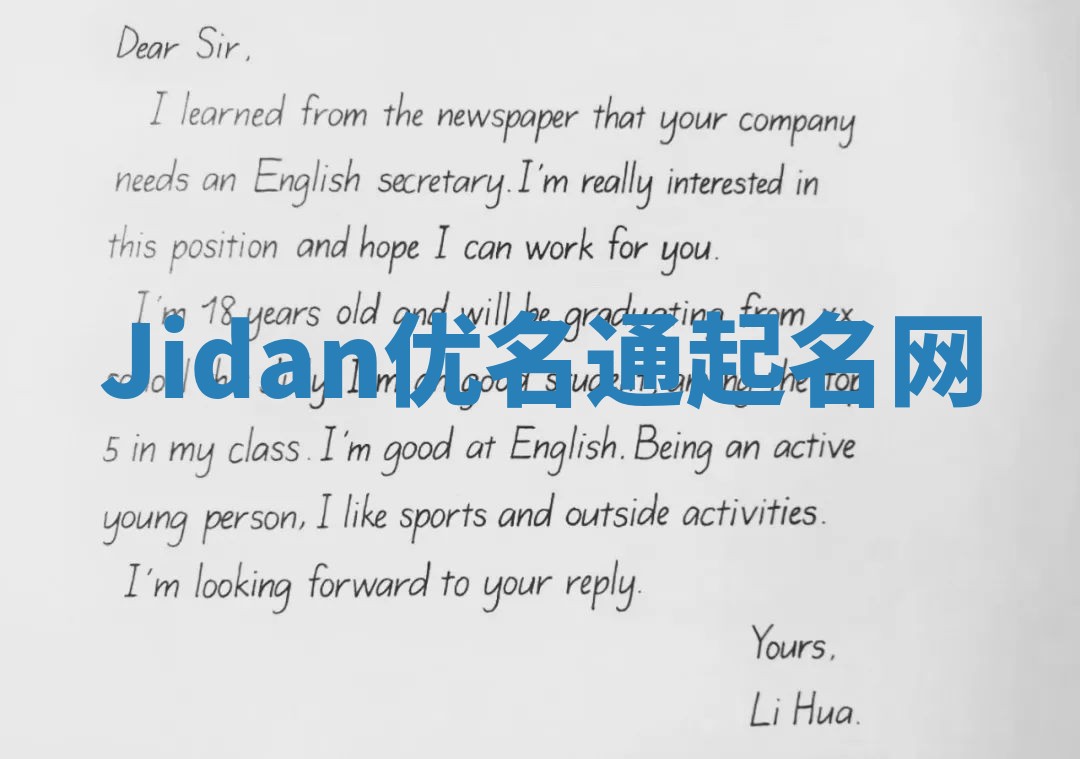 Dear Sir,
I learned from the newspaper that your company
needs an English secretary. I'm really interested in
this position and hope I can work for you.
I'm 18 years old and will be graduating from xx
Jidan优名通起名网
school July. I'm good student, among the top
5 in my class. I'm good at English. Being an active
young person, I like sports and outside activities.
I'm looking forward to your reply.
Yours,
Li Hua.